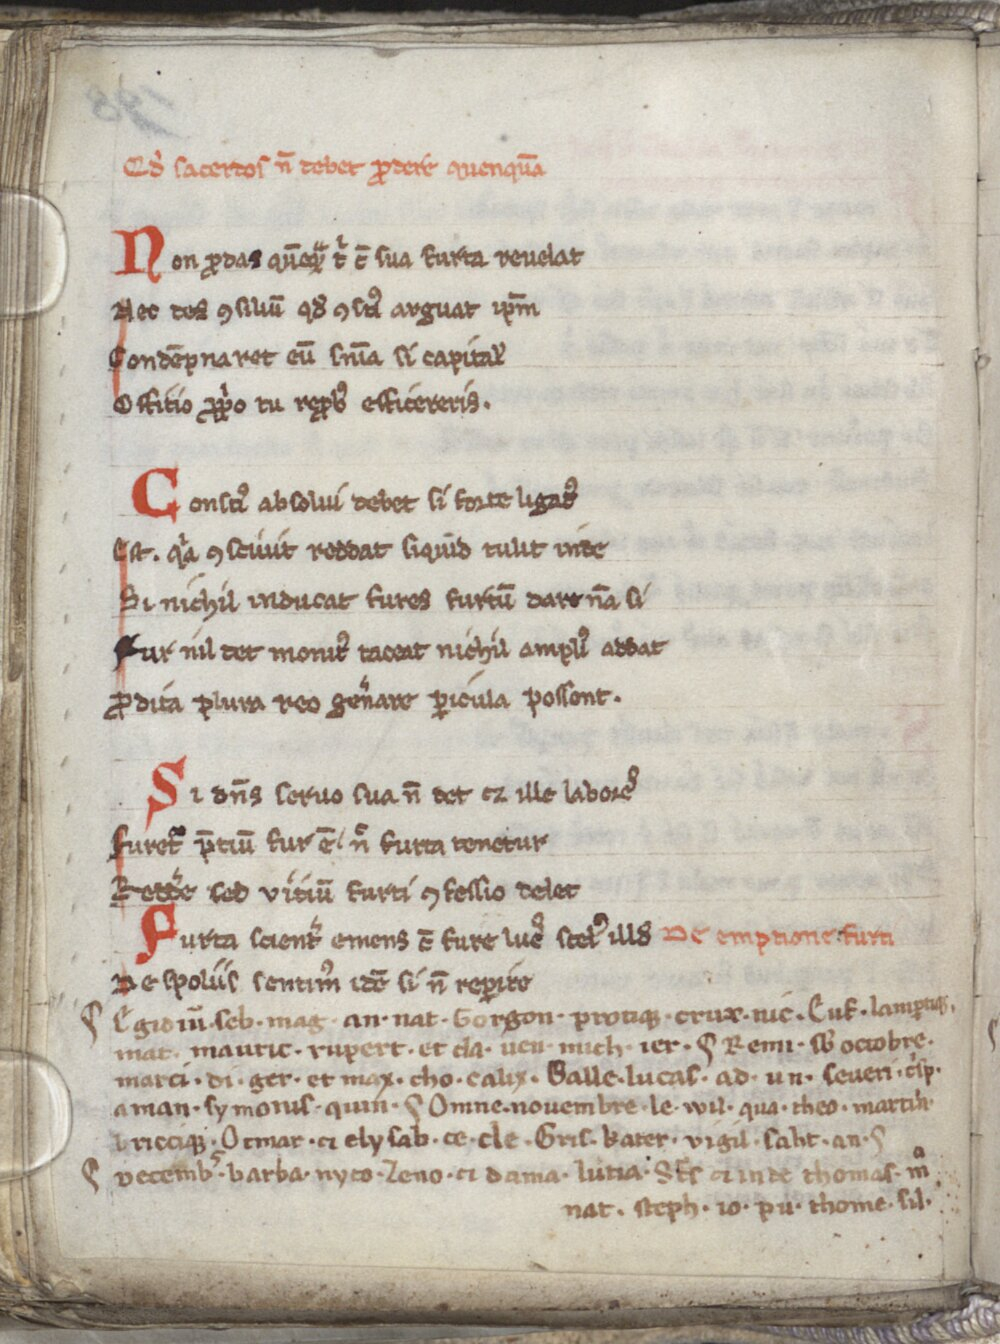 Qđ sacerdos n̄ debet ꝓdere quenquā
Non ꝓdas quēq̄ t̄ c̄ sua furta reuelat
Nec des ꝯsiliū qđ ꝯsciꝰ arguat ip̄m
Condēpnaret eū sn̄ia si capital'
Offitio ꝓp̄o tu rep̄bꝰ efficereris.
Consciꝰ absolui debet si forte ligatꝰ
Est. q̇a ꝯsciuit reddat siquid tulit inde
Si nichil inducat fures furtū dare nā si
Fur nil det monitꝰ taceat nichil ampliꝰ addat
Ꝓdita plura reo gen̄are ꝑicula possent.
Si dn̄s seruo sua n̄ det cz ille laborē
Furet᷑ p̄tiū fur ē n̄ furta tenetur
Redde᷑ sed vitiū furti ꝯfessio delet
Furta scient᷑ emens c̄ fure luet scelꝰ illđ De emptione furti
De spoliis sentimꝰ idē si n̄ reꝑire
Egidiū·seb·mag·an·nat·Gorgon·protiqꝫ·crux·nic·Euf·lampertiqꝫ·
mat·mauric·rupert·et da·uen·mich·ier·Remi·sb octobre·
marci·di·ger·et max·cho·calix·Galle·lucas·ad·un·seueri·crisp·
aman·symonis·quin·Omne·nouembre·le·wil·qua·theo·martin·
bricciqꝫ·Otmar·ci elysab·ce·cle·Gris·kater·vigil·saht·an·
decemb᷑·barba·nyco·Zeno·ci dama·lucia·Sc̄s ci inde thomas·m̄
nat·steph·io·pu·thome·sil·